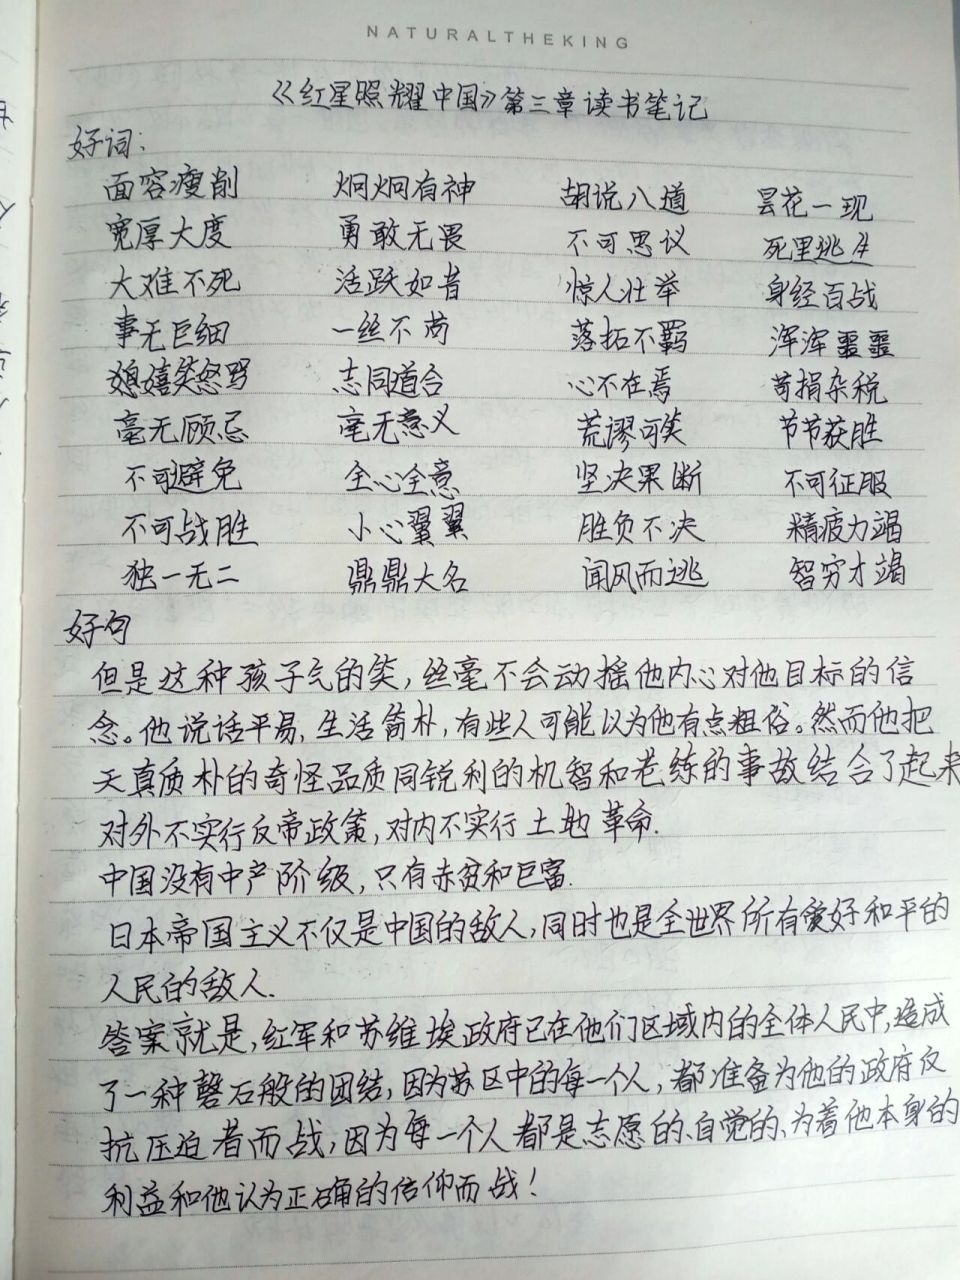 NATURALTHEKING
《红星照耀中国》第三章读书笔记
好词：
面容瘦削 炯炯有神 胡说八道 昙花一现
宽厚大度 勇敢无畏 不可思议 死里逃生
大难不死 活跃如昔 惊人壮举 身经百战
事无巨细 一丝不苟 落拓不羁 浑浑噩噩
嬉笑怒骂 志同道合 心不在焉 苛捐杂税
毫无顾忌 毫无意义 荒谬可笑 节节获胜
不可避免 全心全意 坚决果断 不可征服
不可战胜 小心翼翼 胜负不决 精疲力竭
独一无二 鼎鼎大名 闻风而逃 智穷才竭
好句
但是这种孩子气的笑，丝毫不会动摇他内心对他目标的信
念。他说话平易，生活简朴，有些人可能以为他有点粗俗。然而他把
天真质朴的奇怪品质同锐利的机智和老练的事故结合了起来
对外不实行反帝政策，对内不实行土地革命.
中国没有中产阶级，只有赤贫和巨富.
日本帝国主义不仅是中国的敌人，同时也是全世界所有爱好和平的
人民的敌人.
答案就是，红军和苏维埃政府已在他们区域内的全体人民中，造成
了一种磐石般的团结，因为苏区中的每一个人，都准备为他的政府反
抗压迫者而战，因为每一个人都是志愿的、自觉的、为着他本身的
利益和他认为正确的信仰而战！